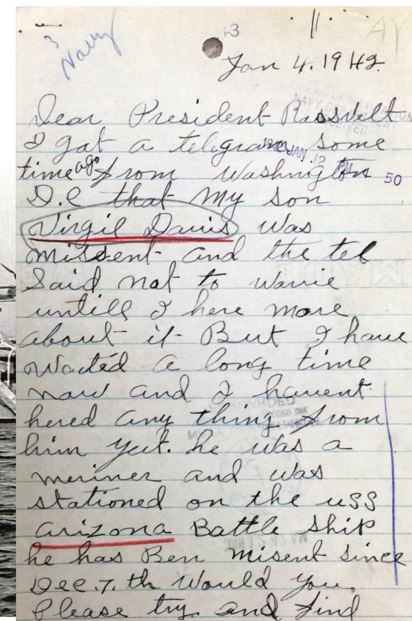 3
Navy
Jan 4. 1942
Dear President Rassvilt
I gat a telegram some
time ago from Washington
D.C that my son
Virgil Davis was
missent and the tel
said not to warie
untill I here more
about it But I have
wated a long time
now and I havent
hered any thing from
him yet. he was a
meriner and was
stationed on the USS
Arizona Battle Ship
he has Ben misent since
Dec. 7. th Would you
Please try and find